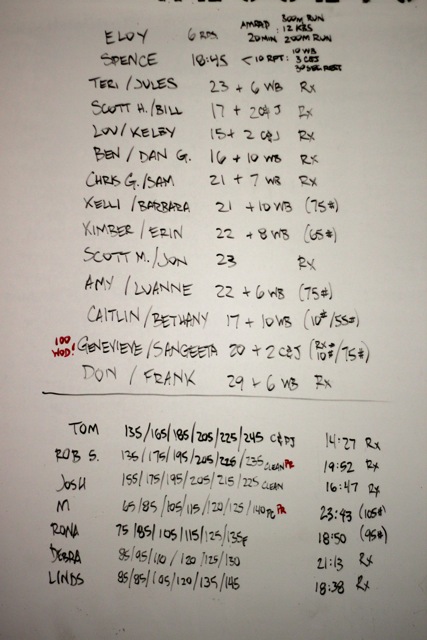 ELOY 6 RDS AMRAP 20MIN 800M RUN
12 KBS
200M RUN
SPENCE 18:45 < 10 RFT: 10 WB
3 C&J
30 SEC REST
TERI / JULES 23 + 6 WB Rx
SCOTT H. / BILL 17 + 2C&J Rx
LUV / KELBY 15 + 2 C&J Rx
BEN / DAN G. 16 + 10 WB Rx
CHRIS G. / SAM 21 + 7 WB Rx
KELLI / BARBARA 21 + 10 WB (75#)
KIMBER / ERIN 22 + 8 WB (65#)
SCOTT M. / JON 23 Rx
AMY / LUANNE 22 + 6 WB (75#)
CAITLIN / BETHANY 17 + 10 WB (10#/55#)
100 WOD! GENEVIEVE / SANGEETA 20 + 2 C&J (Rx + 10#/75#)
DON / FRANK 29 + 6 WB Rx
TOM 135/165/185/205/225/245 C&PJ 14:27 Rx
ROB S. 135/175/195/205/225/235 CLEAN PR 19:52 Rx
JOSH 155/175/195/205/215/225 CLEAN 16:47 Rx
M 65/85/105/115/120/125/140 PC PR 23:43 (105#)
RONA 75/85/105/115/125/135F 18:50 (95#)
DEBRA 85/95/110/120/125/130 21:13 Rx
LINDS 85/95/105/120/135/145 18:38 Rx